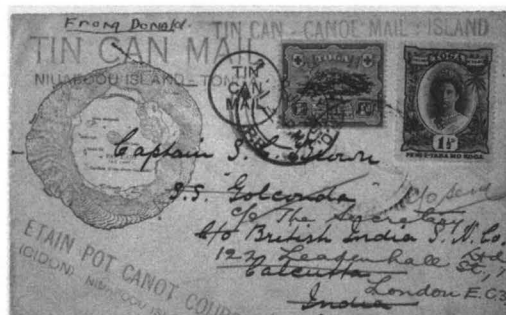 From Donald.
TIN CAN - CANOE MAIL - ISLAND
TIN CAN MAIL
NIUAFOOU ISLAND - TON
TIN
CAN
MAIL
TOGA
TOGA
1½
PENI-E-TAHA MO HOGA
Captain S. C. Brown
S.S. Golconda
c/o The Secretary
c/o British India S. N. Co. Ltd
122 Leadenhall St.,
Calcutta
London E.C.3
India
ETAIN POT CANOT COUR
NIUAFOOU IS